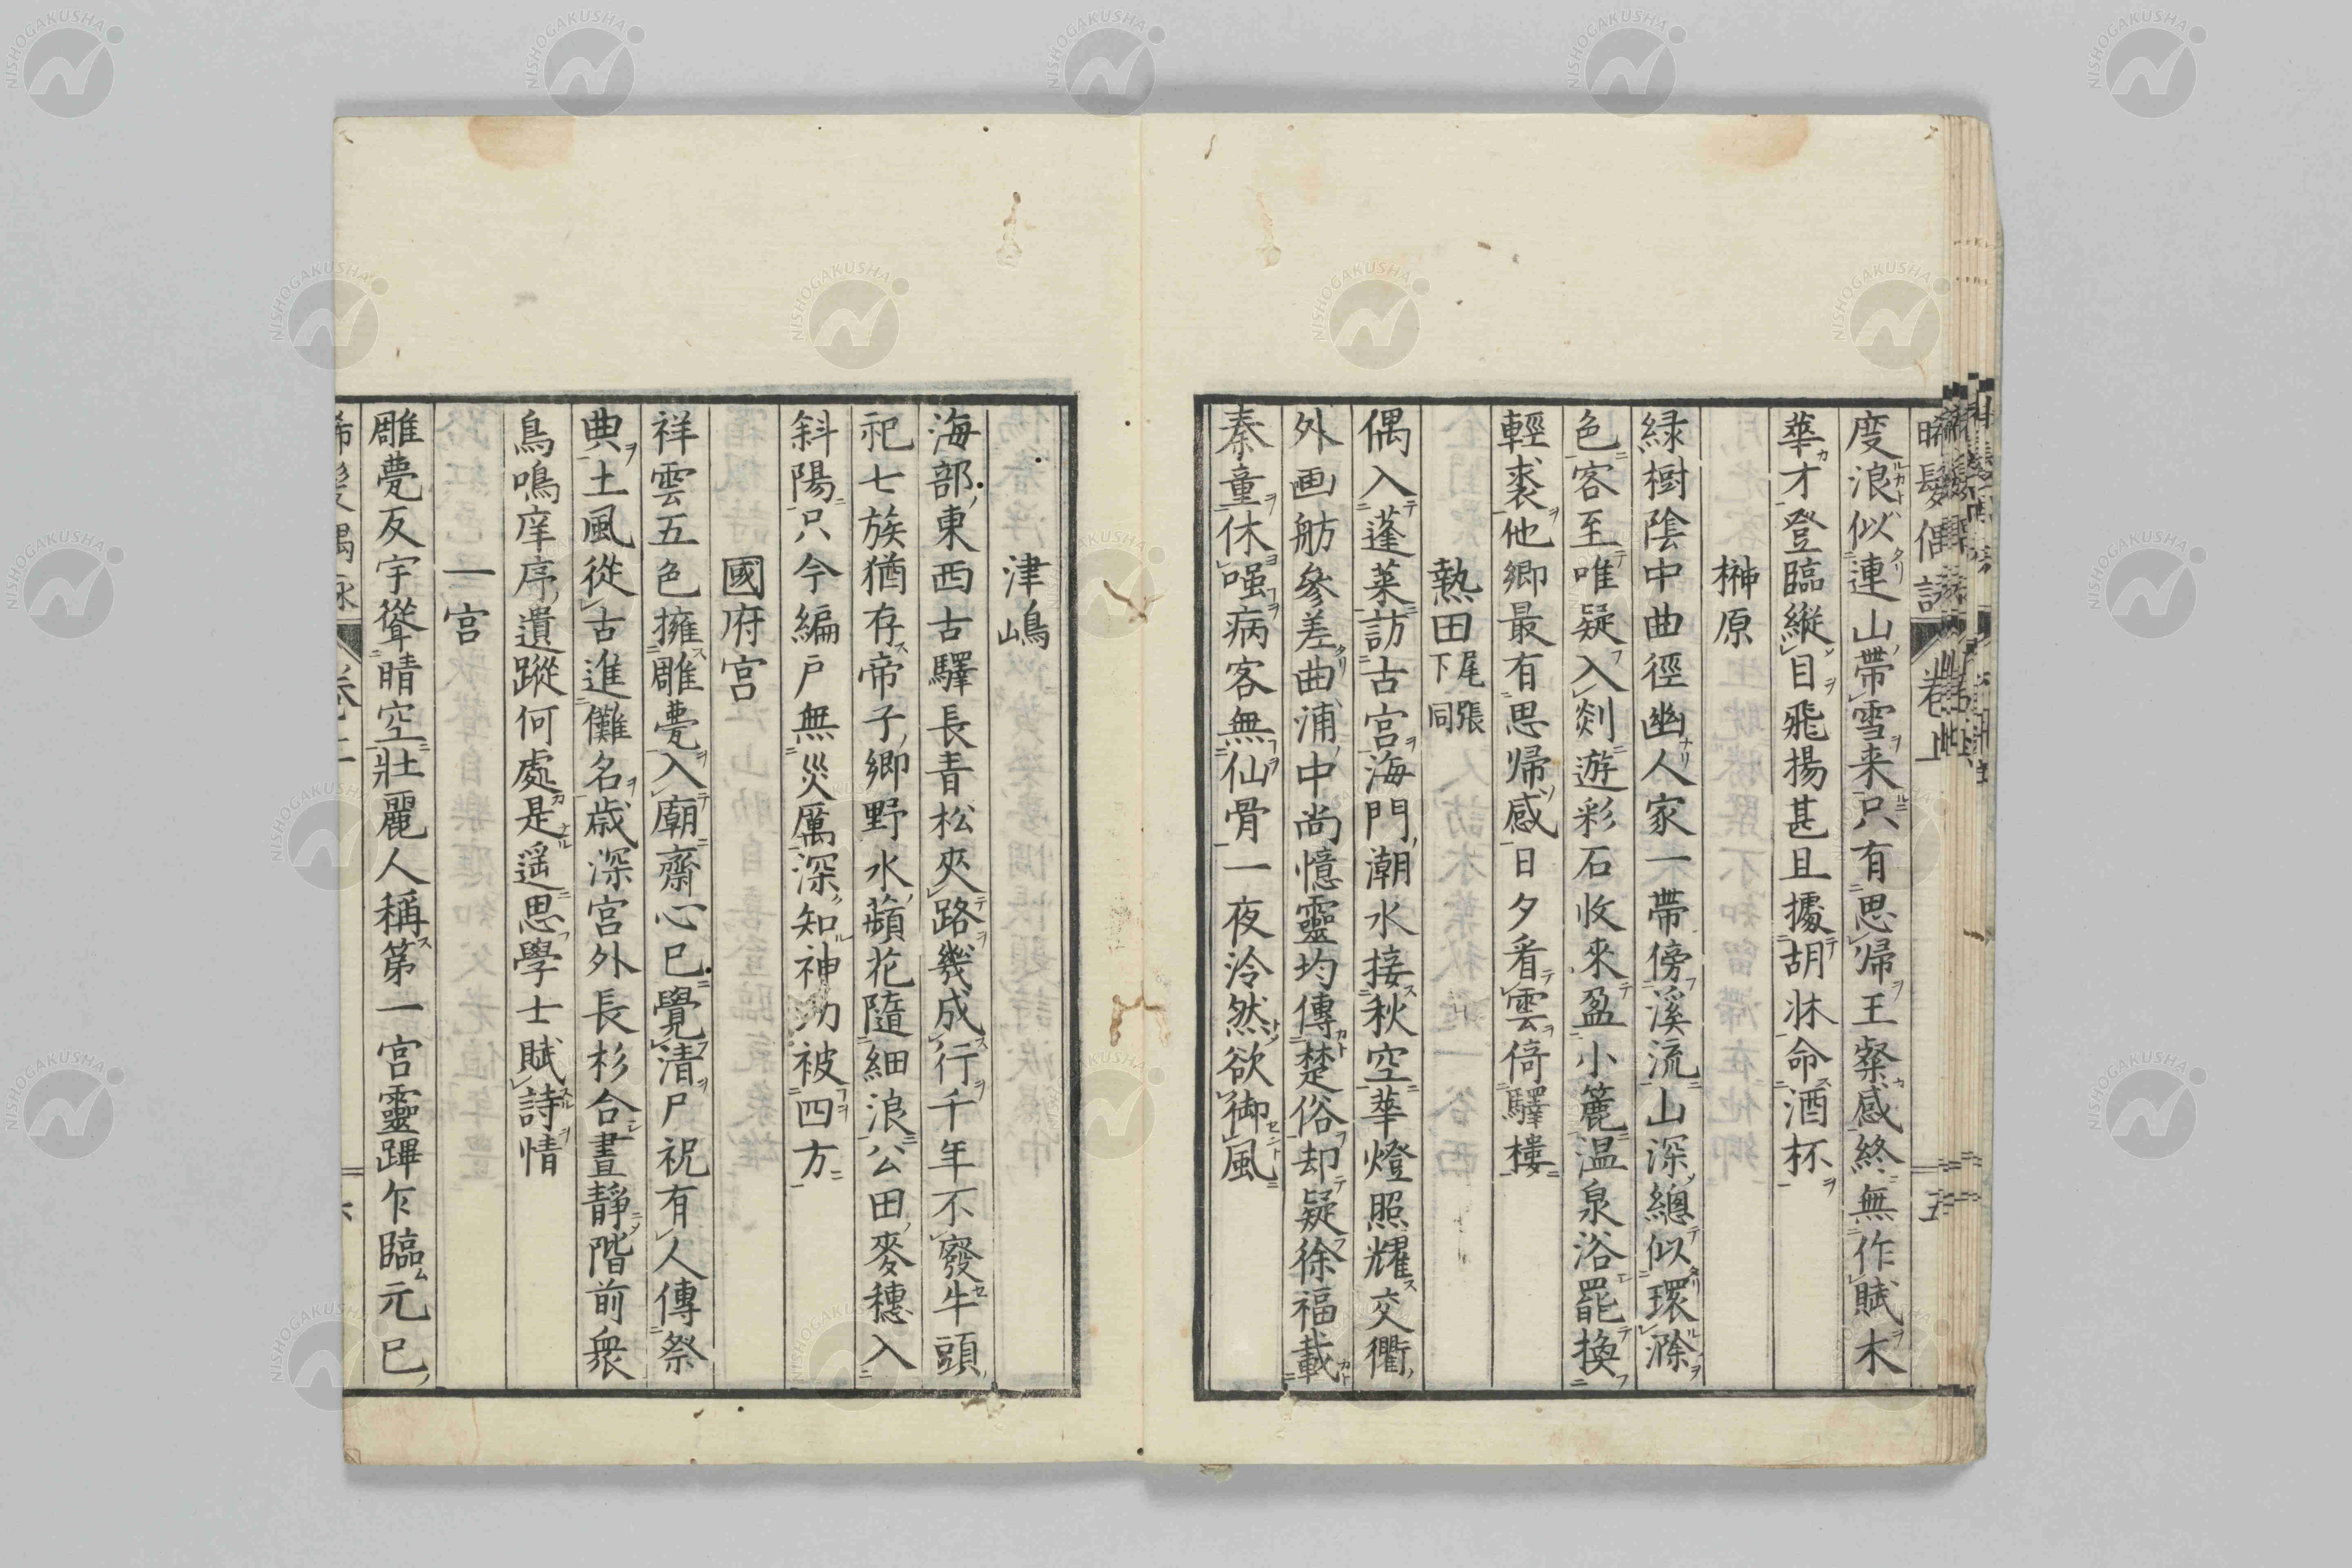 晞髮偶詠 卷上 五
度浪似連山帶雪来只有思歸王粲感終無作賦木
華才登臨縱目飛揚甚且據胡牀命酒杯
榊原
緑樹陰中曲徑幽人家一帶傍溪流山深總似環滁
色客至唯疑入剡遊彩石收來盈小簏温泉浴罷換
輕裘他鄉最有思歸感日夕看雲倚驛樓
熱田尾張下同
偶入蓬萊訪古宮海門潮水接秋空華燈照耀交衢
外画舫參差曲浦中尚憶靈均傳楚俗却疑徐福載
秦童休嗤病客無仙骨一夜泠然欲御風
津嶋
海部東西古驛長青松夾路幾成行千年不廢牛頭
祀七族猶存帝子鄉野水蘋花隨細浪公田麥穗入
斜陽只今編戶無災厲深知神功被四方
國府宮
祥雲五色擁雕甍入廟齋心已覺清尸祝有人傳祭
典土風從古進儺名歳深宮外長杉合晝靜階前衆
鳥鳴庠序遺蹤何處是遥思學士賦詩情
一宮
雕甍反宇聳晴空壯麗人稱第一宮靈蹕乍臨元巳